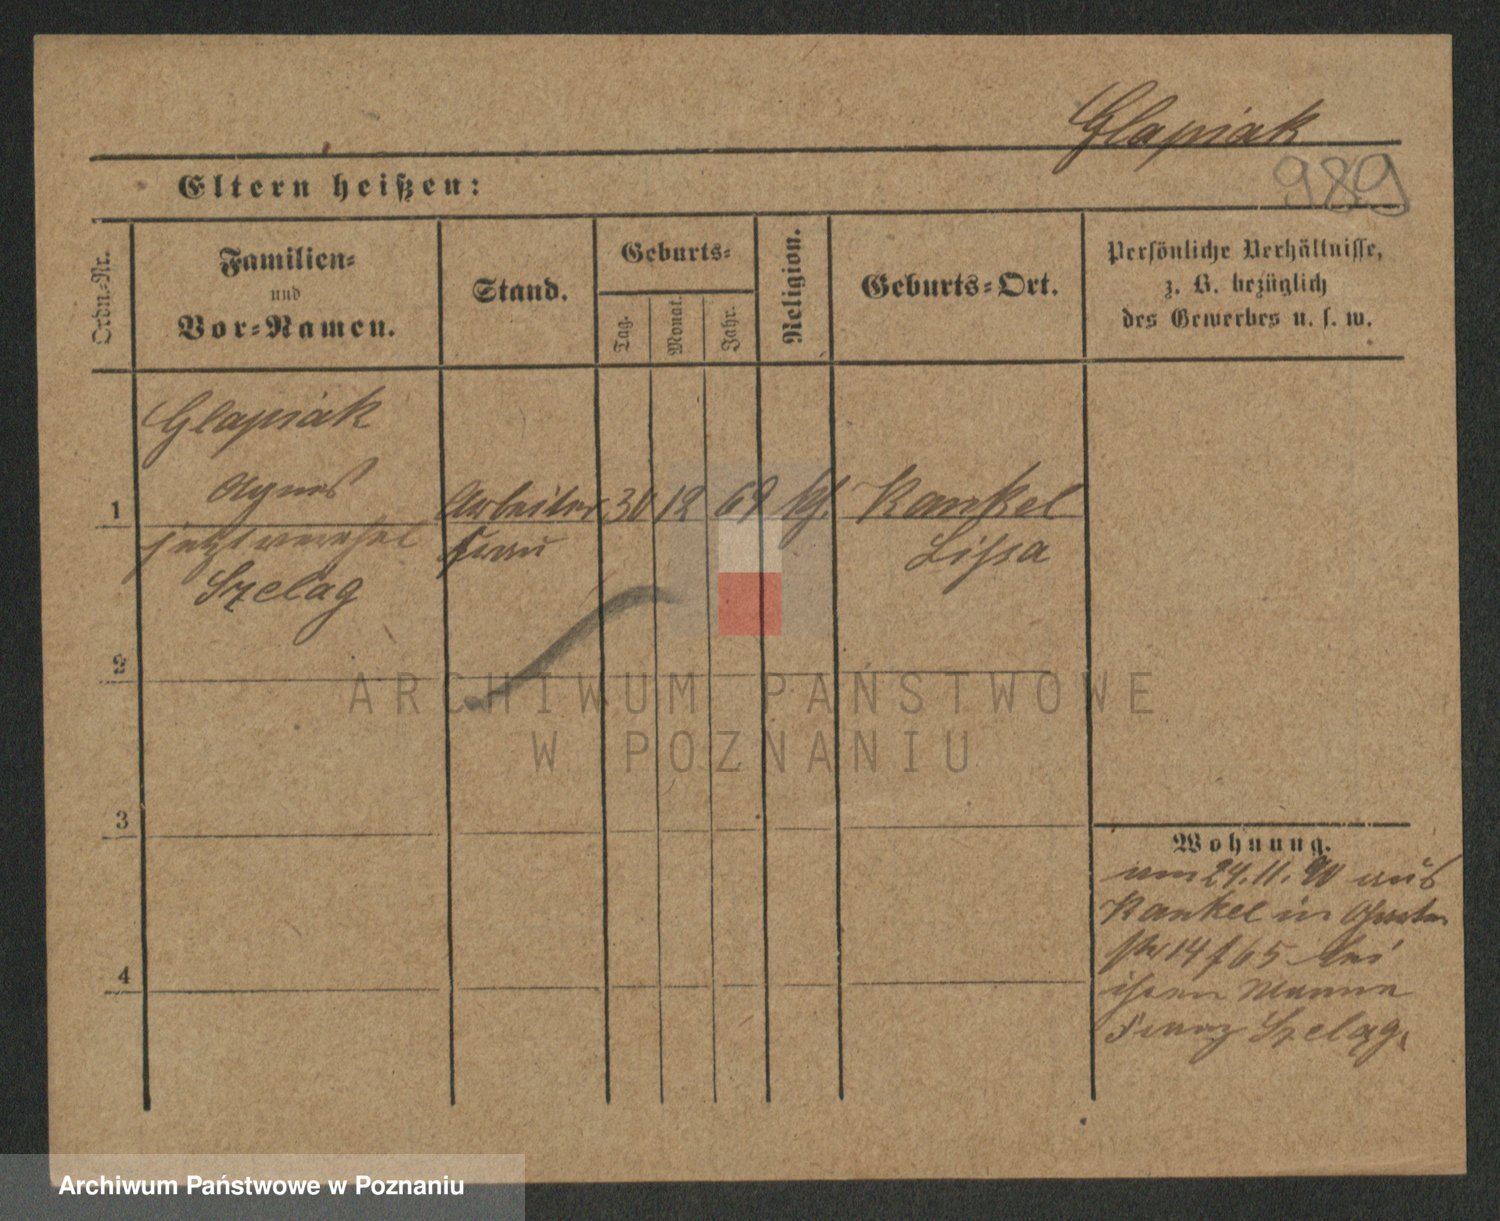 Glapiak
989
Eltern heißen:
Ordn.-Nr.
Familien-
und
Vor-Namen.
Stand.
Geburts-
Tag.
Monat.
Jahr.
Religion.
Geburts-Ort.
Persönliche Verhältnisse,
z. B. bezüglich
des Gewerbes u. s. w.
Glapiak
1 Agnes Arbeiter 30 12 69 kt. Kankel
Frau Lissa
Szelag
2
3
4
Wohnung.
am 24.11.90 aus
Kankel in
14 65 bei
ihrem Manne
Franz Szelag,
ARCHIWUM PAŃSTWOWE
W POZNANIU
Archiwum Państwowe w Poznaniu